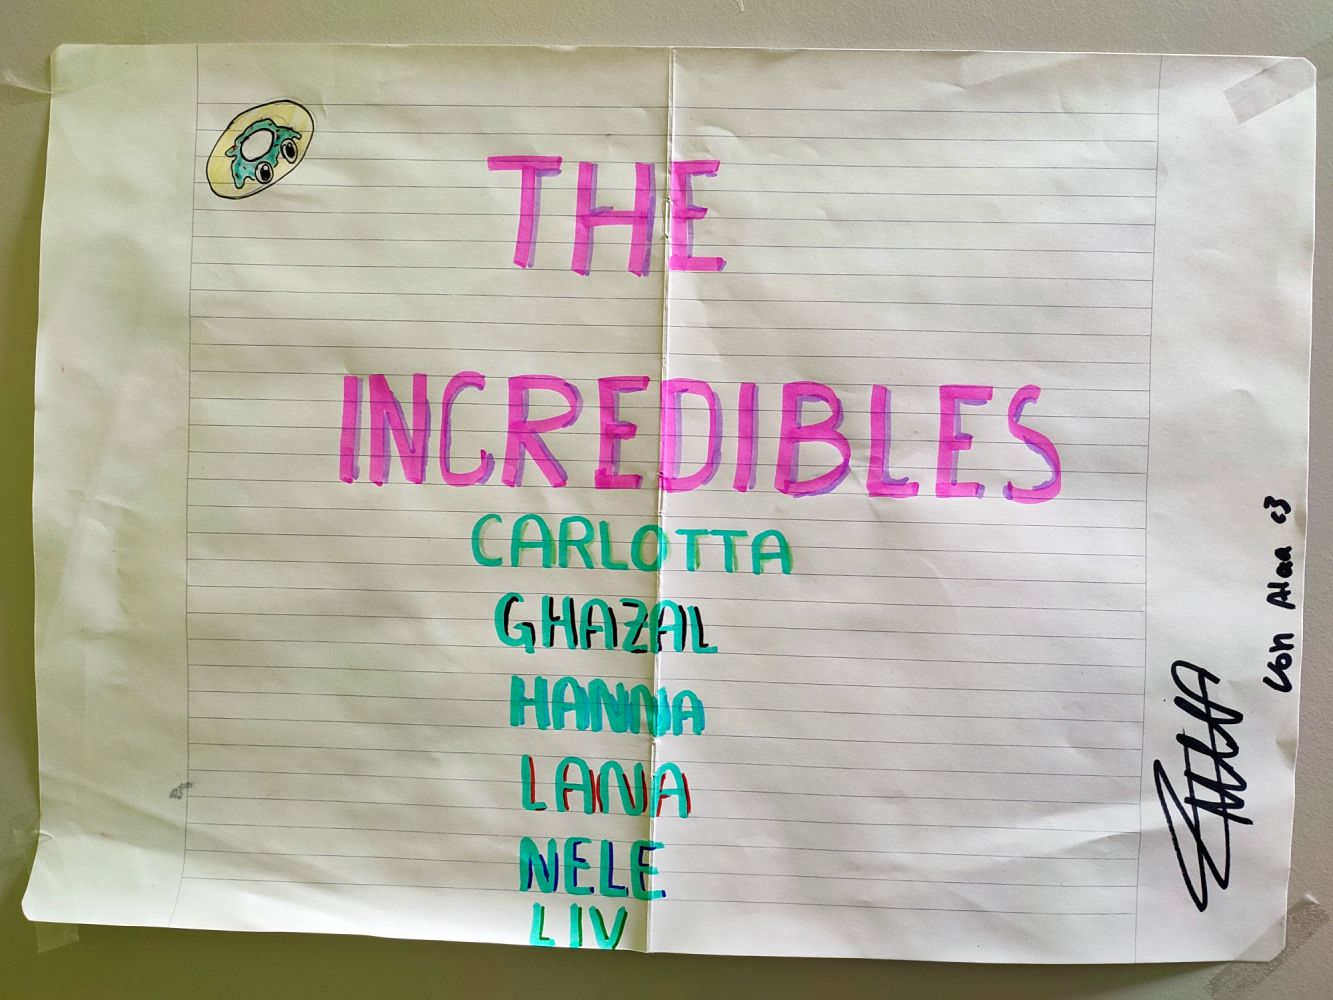 THE
INCREDIBLES
CARLOTTA
GHAZAL
HANNA
LANA
NELE
LIV
von Alaa <3